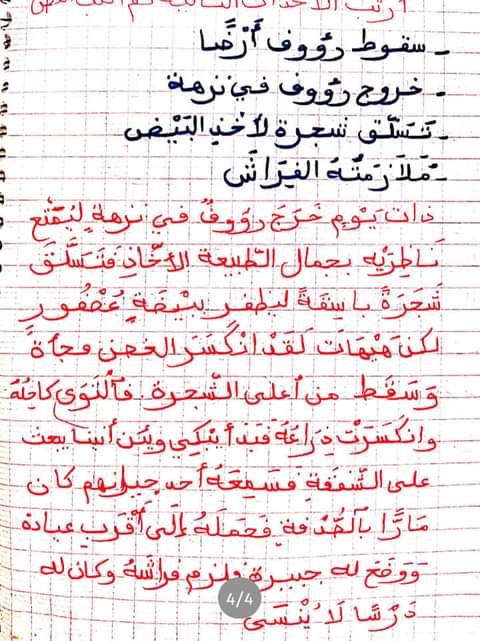 رتب الأحداث التالية ثم
- سقوط رؤوف أَرْضًا
- خروج رؤوف في نزهة
- تَسَلُّق شجرة لأخذ البَيْض
- مُلَازَمَتُهُ الفِرَاشَ
ذات يَوْمٍ خَرَجَ رؤوفٌ في نزهةٍ ليُمَتِّعَ
نَاظِرَيْهِ بجمال الطّبيعة الأخّاذِ فَتَسَلَّقَ
شَجَرَةً باسِقَةً ليظفر ببَيْضَةِ عُصْفُورٍ
لكن هَيْهَاتَ لَقَدْ انْكَسَرَ الغصن فجأةً
وَسَقَطَ من أعلى الشّجرة فَالْتَوَى كَاحِلُهُ
وانكَسَرَتْ ذِرَاعُهُ فَبَدأَ يَبْكِي ويَئِن أنينا يبعث
على الشّفقةِ فَسَمِعَهُ أحد جيرانهم كان
مَارًّا بالصُّدفةِ فَحَمَلَهُ إلَى أَقْرَبِ عيادة
وَوَضَعَ له جبيرة ولزم فراشَهُ وكان له
دَرْسًا لَا يُنْسَى
4/4